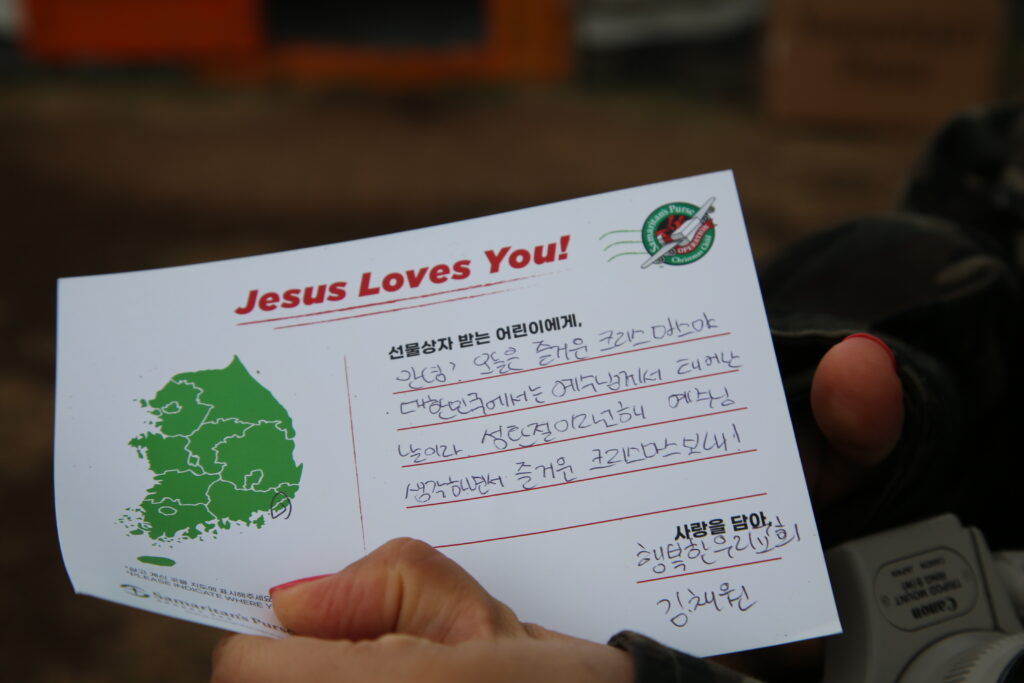 Jesus Loves You!
Samaritan's Purse
OPERATION
Christmas Child
선물상자 받는 어린이에게,
안녕? 오늘은 즐거운 크리스마스야
대한민국에서는 예수님께서 태어난
날이라 성탄절이라고해 예수님
생각하면서 즐거운 크리스마스보내!
사랑을 담아,
행복한우리교회
김채원
*살고 계신 곳을 지도에 표시해주세요
*PLEASE INDICATE WHERE Y
Samaritan's Purse
Canon
TRIPOD MOUNT
CANON JAPAN